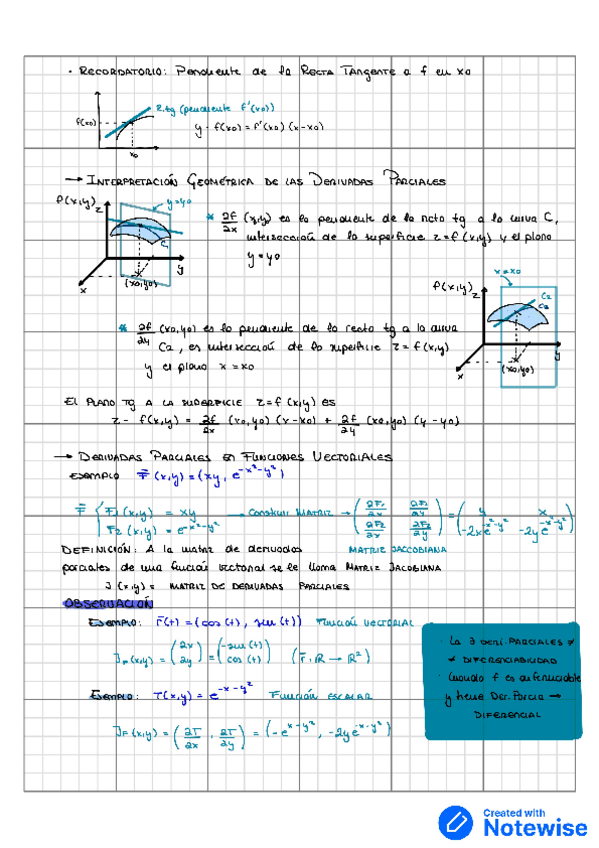 · RECORDATORIO: Pendiente de la RECTA TANGENTE a f en x0
R.tg (pendiente f'(x0))
f(x0)
y - f(x0) = f'(x0) (x-x0)
x0
→ INTERPRETACIÓN GEOMÉTRICA DE LAS DERIVADAS PARCIALES
f(x,y) z
y=y0
* ∂f/∂x (x,y) es la pendiente de la recta tg a la curva C,
intersección de la superficie z=f(x,y) y el plano
y=y0
C1
y
x
(x0,y0)
x=x0
f(x,y) z
C2
C2
y
x
(x0,y0)
* ∂f/∂y (x0,y0) es la pendiente de la recta tg a la curva
C2, es intersección de la superficie z=f(x,y)
y el plano x=x0
EL PLANO TG A LA SUPERFICIE z=f(x,y) es
z - f(x,y) = ∂f/∂x (x0,y0) (x-x0) + ∂f/∂y (x0,y0) (y-y0)
→ DERIVADAS PARCIALES en FUNCIONES VECTORIALES
EJEMPLO F(x,y) = (xy, e^-x²-y²)
F { F1(x,y) = xy → Construir MATRIZ → (∂F1/∂x ∂F1/∂y) = (y x)
F2(x,y) = e^-x²-y² (∂F2/∂x ∂F2/∂y) (-2xe^-x²-y² -2ye^-x²-y²)
DEFINICIÓN: A la matriz de derivadas MATRIZ JACCOBIANA
parciales de una función vectorial se le llama MATRIZ JACOBIANA
J(x,y) = MATRIZ DE DERIVADAS PARCIALES
OBSERVACIÓN
EJEMPLO: r(t) = (cos(t), sen(t)) FUNCIÓN VECTORIAL
(x,y) = (∂x ∂y) = (-sen(t) cos(t)) (r: ℝ → ℝ²)
EJEMPLO: T(x,y) = e^-x-y² FUNCIÓN ESCALAR
JF(x,y) = (∂T/∂x , ∂T/∂y) = (-e^-x-y², -2ye^-x-y²)
· La ∃ deri. PARCIALES ⇏
DIFERENCIABILIDAD
· Cuando f es diferenciable
y tiene Der. Parcia →
DIFERENCIAL
Created with
Notewise